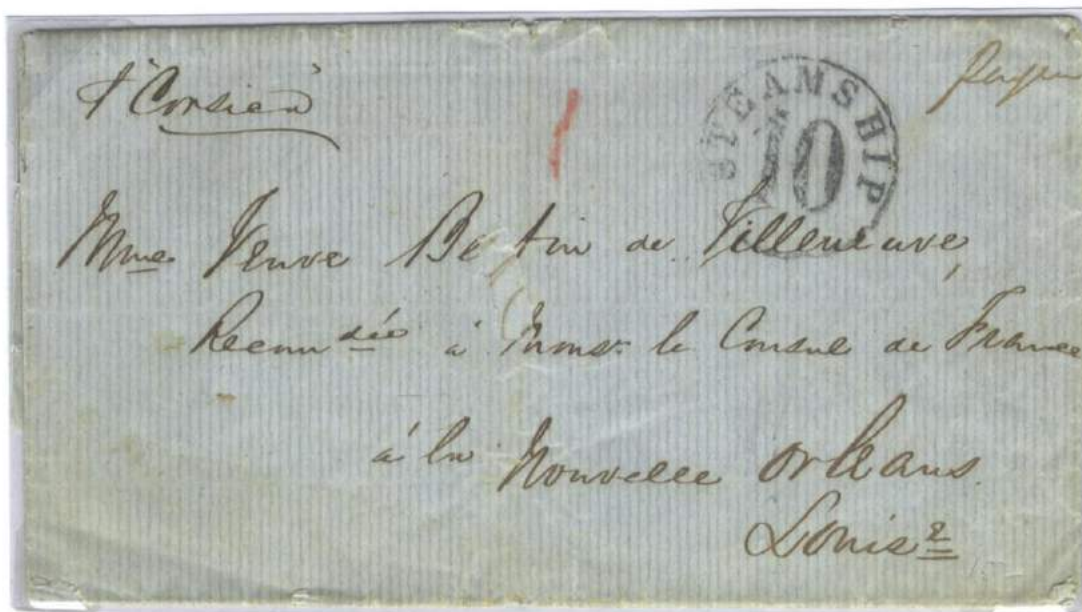 p "Corsica"
STEAMSHIP
10
Mme Veuve Be tin de Villeneuve,
Recomdée à Monsr le Consul de France
à la Nouvelle Orleans.
Louise